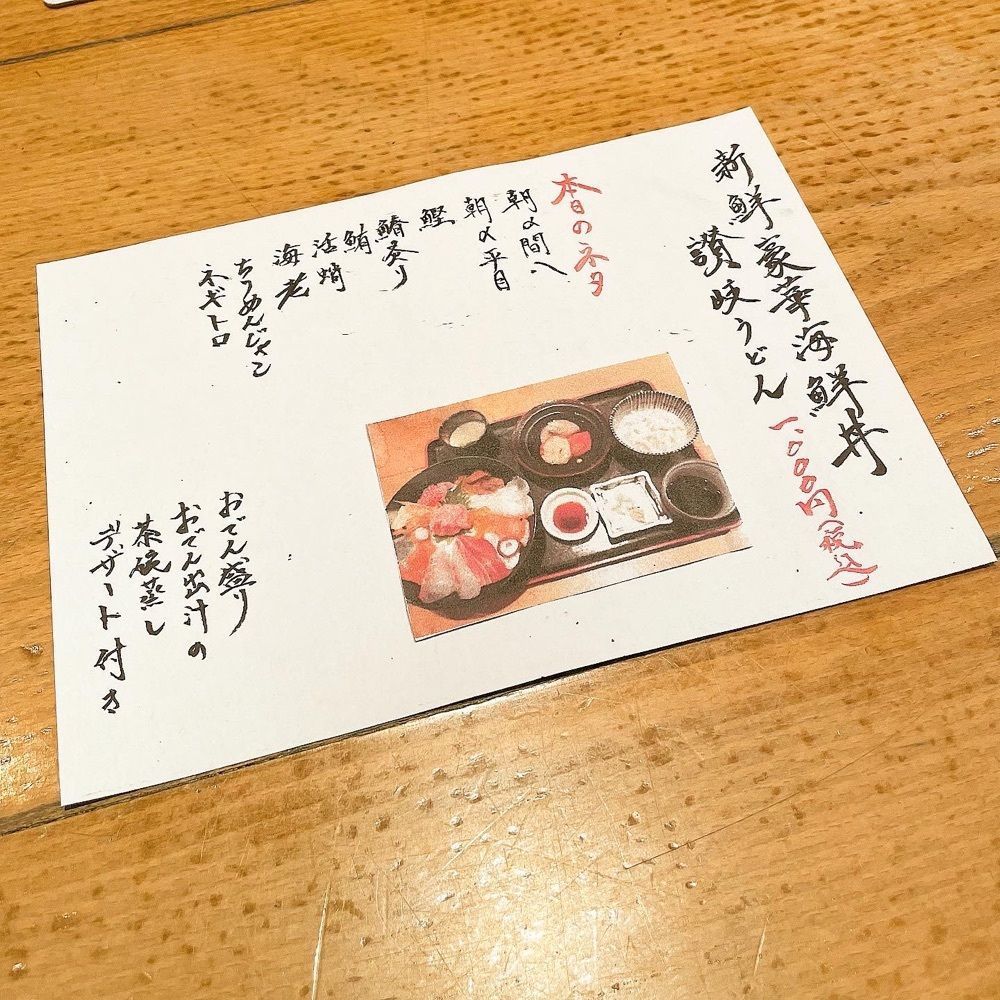 新鮮豪華海鮮丼
讃岐うどん
一、〇〇〇円(税込)
本日のネタ
朝〆間八
朝〆平目
鰹
鰆炙り
鮪
活蛸
海老
ちりめんじゃこ
ネギトロ
おでん盛り
おでん出汁の
茶碗蒸し
デザート付き